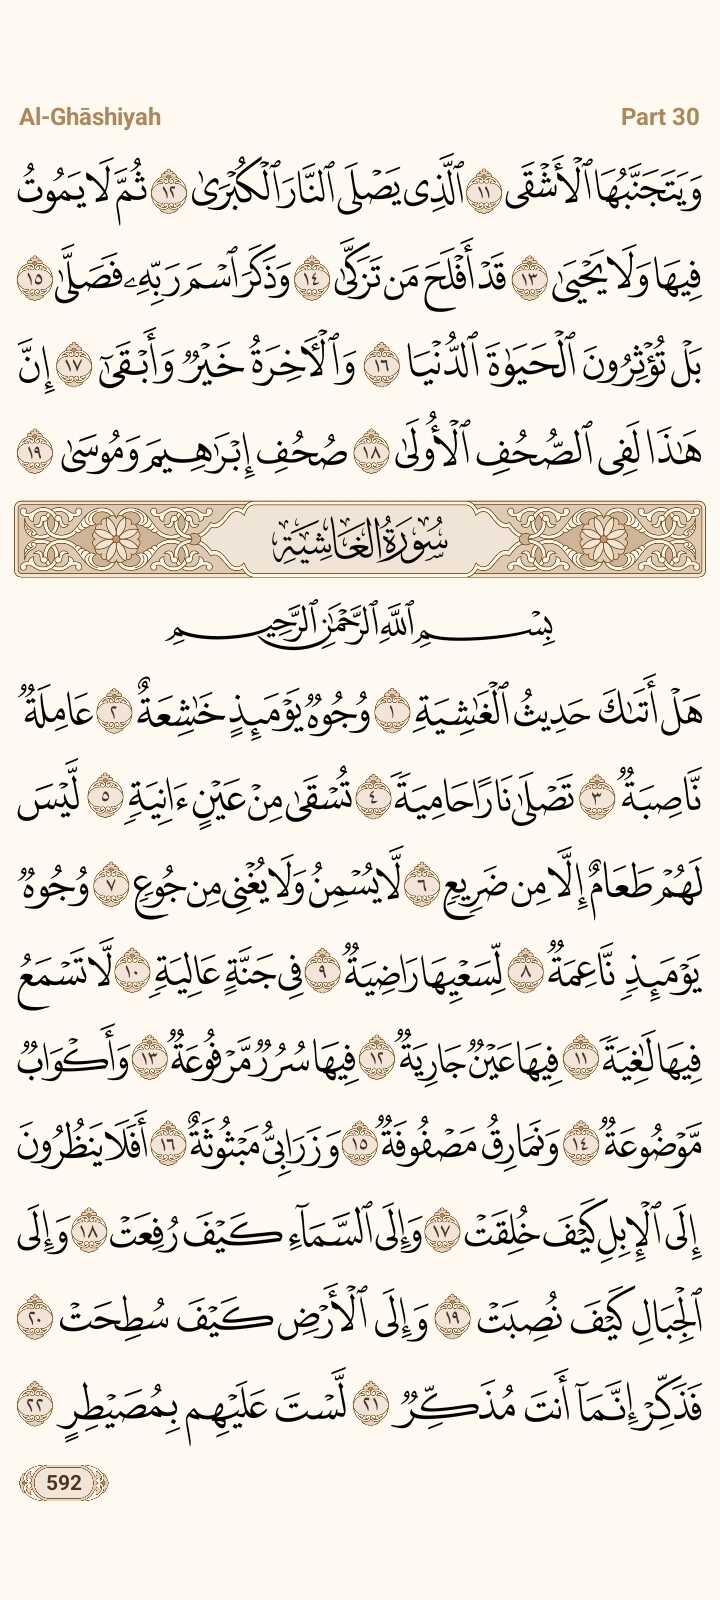 Al-Ghāshiyah
Part 30
وَيَتَجَنَّبُهَا ٱلْأَشْقَى ١١ ٱلَّذِى يَصْلَى ٱلنَّارَ ٱلْكُبْرَىٰ ١٢ ثُمَّ لَا يَمُوتُ
فِيهَا وَلَا يَحْيَىٰ ١٣ قَدْ أَفْلَحَ مَن تَزَكَّىٰ ١٤ وَذَكَرَ ٱسْمَ رَبِّهِۦ فَصَلَّىٰ ١٥
بَلْ تُؤْثِرُونَ ٱلْحَيَوٰةَ ٱلدُّنْيَا ١٦ وَٱلْـَٔاخِرَةُ خَيْرٌ وَأَبْقَىٰٓ ١٧ إِنَّ
هَـٰذَا لَفِى ٱلصُّحُفِ ٱلْأُولَىٰ ١٨ صُحُفِ إِبْرَٰهِيمَ وَمُوسَىٰ ١٩
سُورَةُ الغَاشِيَةِ
بِسْمِ ٱللَّهِ ٱلرَّحْمَـٰنِ ٱلرَّحِيمِ
هَلْ أَتَىٰكَ حَدِيثُ ٱلْغَـٰشِيَةِ ١ وُجُوهٌ يَوْمَئِذٍ خَـٰشِعَةٌ ٢ عَامِلَةٌ
نَّاصِبَةٌ ٣ تَصْلَىٰ نَارًا حَامِيَةً ٤ تُسْقَىٰ مِنْ عَيْنٍ ءَانِيَةٍ ٥ لَّيْسَ
لَهُمْ طَعَامٌ إِلَّا مِن ضَرِيعٍ ٦ لَّا يُسْمِنُ وَلَا يُغْنِى مِن جُوعٍ ٧ وُجُوهٌ
يَوْمَئِذٍ نَّاعِمَةٌ ٨ لِّسَعْيِهَا رَاضِيَةٌ ٩ فِى جَنَّةٍ عَالِيَةٍ ١٠ لَّا تَسْمَعُ
فِيهَا لَـٰغِيَةً ١١ فِيهَا عَيْنٌ جَارِيَةٌ ١٢ فِيهَا سُرُرٌ مَّرْفُوعَةٌ ١٣ وَأَكْوَابٌ
مَّوْضُوعَةٌ ١٤ وَنَمَارِقُ مَصْفُوفَةٌ ١٥ وَزَرَابِىُّ مَبْثُوثَةٌ ١٦ أَفَلَا يَنظُرُونَ
إِلَى ٱلْإِبِلِ كَيْفَ خُلِقَتْ ١٧ وَإِلَى ٱلسَّمَآءِ كَيْفَ رُفِعَتْ ١٨ وَإِلَى
ٱلْجِبَالِ كَيْفَ نُصِبَتْ ١٩ وَإِلَى ٱلْأَرْضِ كَيْفَ سُطِحَتْ ٢٠
فَذَكِّرْ إِنَّمَآ أَنتَ مُذَكِّرٌ ٢١ لَّسْتَ عَلَيْهِم بِمُصَيْطِرٍ ٢٢
592